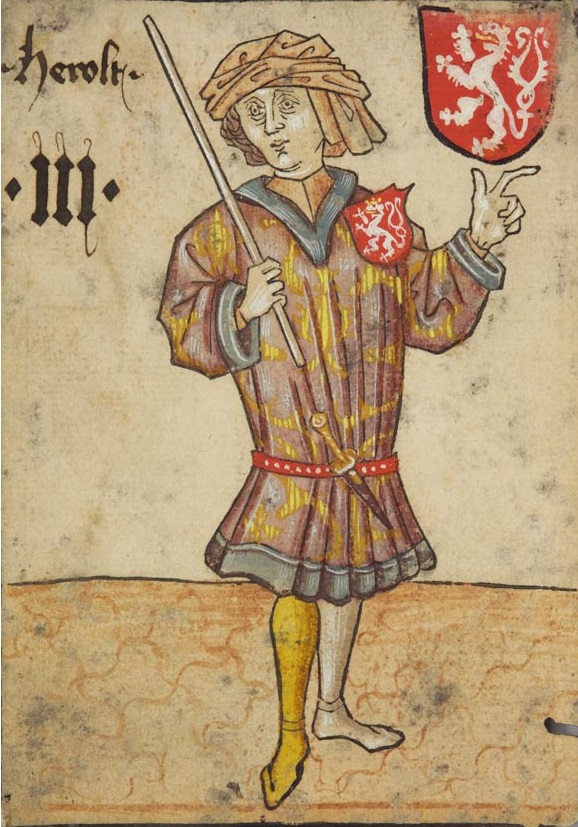 ·herolt·
·III·